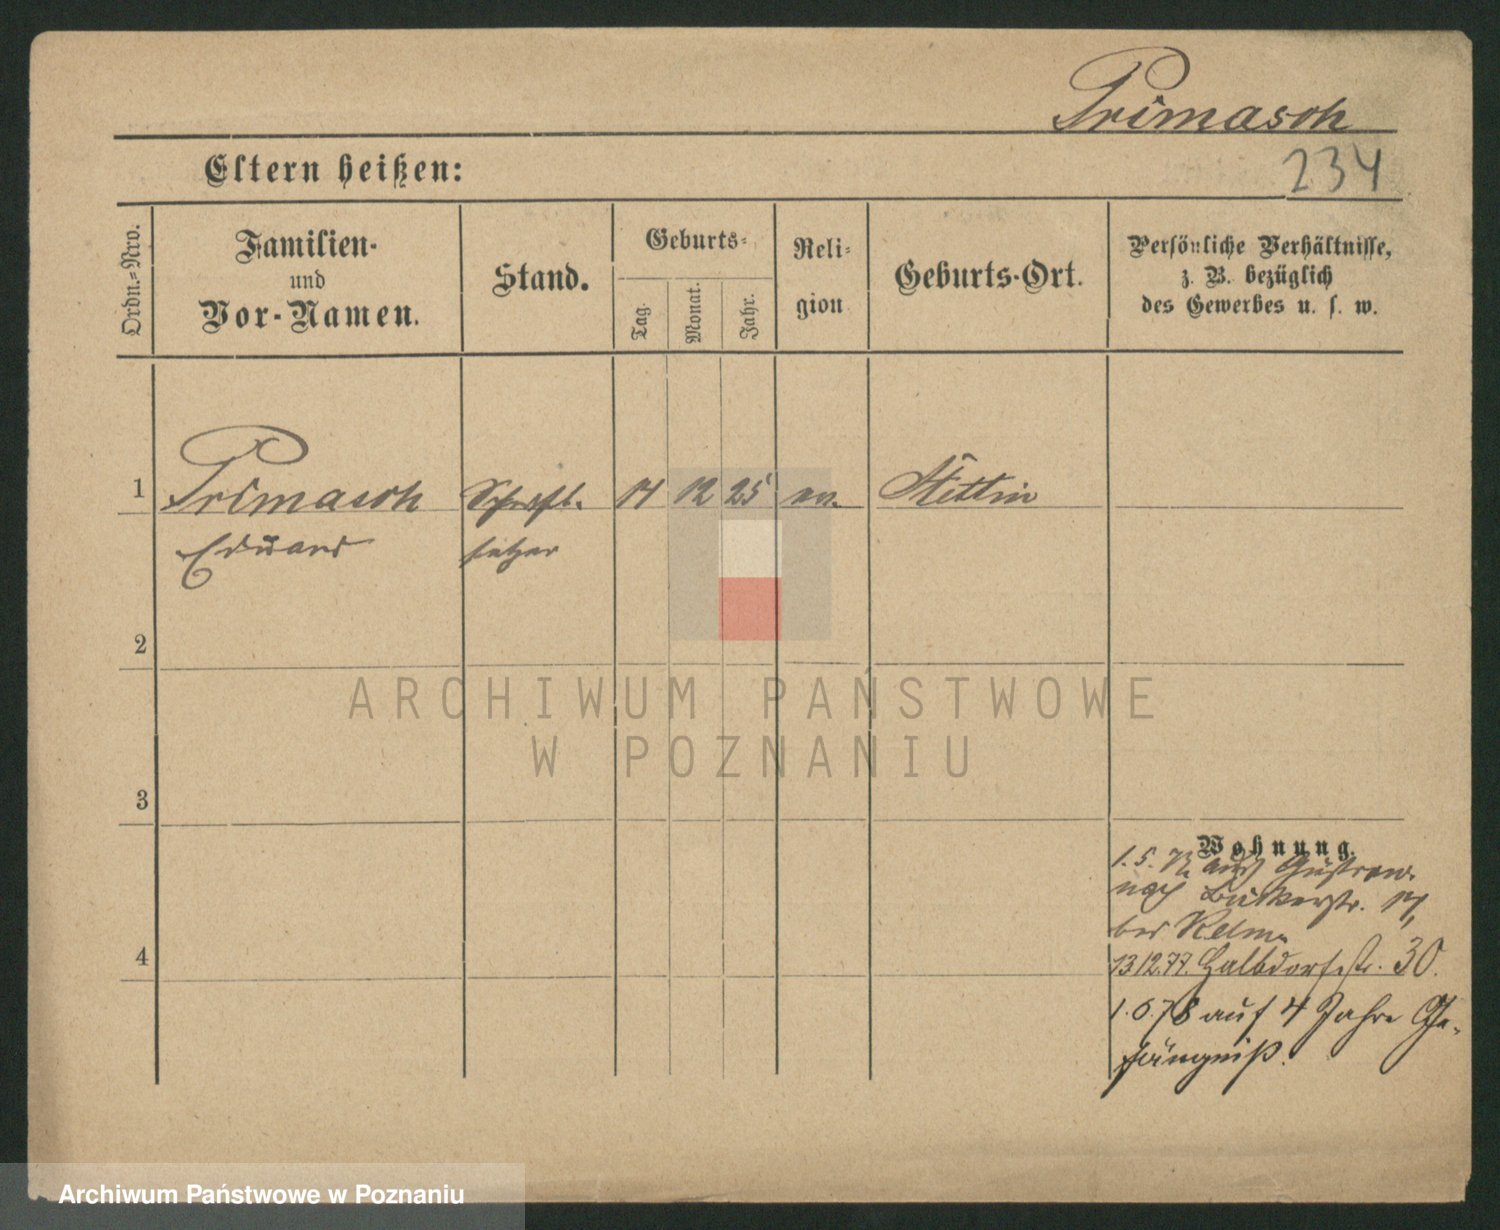 Primasch
Eltern heißen:
234
Ordn.-Nro.
Familien-
und
Vor-Namen.
Stand.
Geburts-
Tag.
Monat.
Jahr.
Reli-
gion
Geburts-Ort.
Persönliche Verhältnisse,
z. B. bezüglich
des Gewerbes u. s. w.
1 Primasch Schrift- 14 12 25 ev. Stettin
Eduard setzer
2
ARCHIWUM PAŃSTWOWE
W POZNANIU
3
Wohnung.
1. 5. aus Güstrow
nach Bäckerstr. 17,
bei
4 13 12.77. Halbdorfstr. 30.
1. 6. 78 auf 4 Jahre Ge-
fängniß.
Archiwum Państwowe w Poznaniu